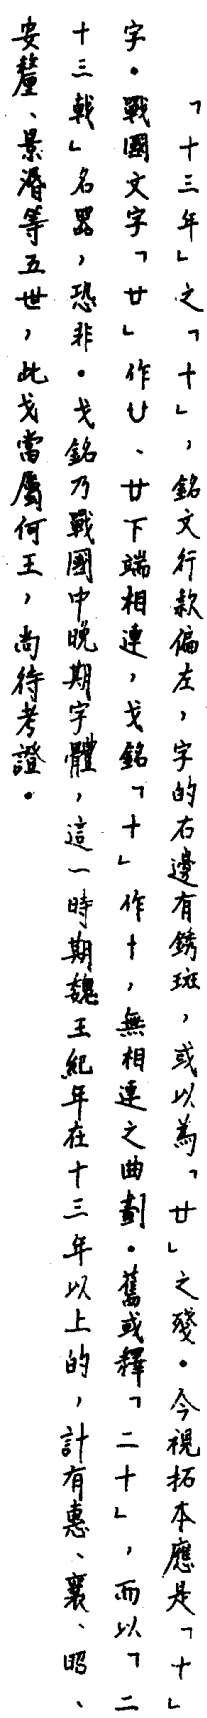 「十三年」之「十」，銘文行款偏左，字的右邊有銹斑，或以為「廿」之殘。今視拓本應是「十」
字。戰國文字「廿」作廿、廿下端相連，戈銘「十」作十，無相連之曲劃。舊或釋「二十」，而以「二
十三戟」名器，恐非。戈銘乃戰國中晚期字體，這一時期魏王紀年在十三年以上的，計有惠、襄、昭、
安釐、景湣等五世，此戈當屬何王，尚待考證。